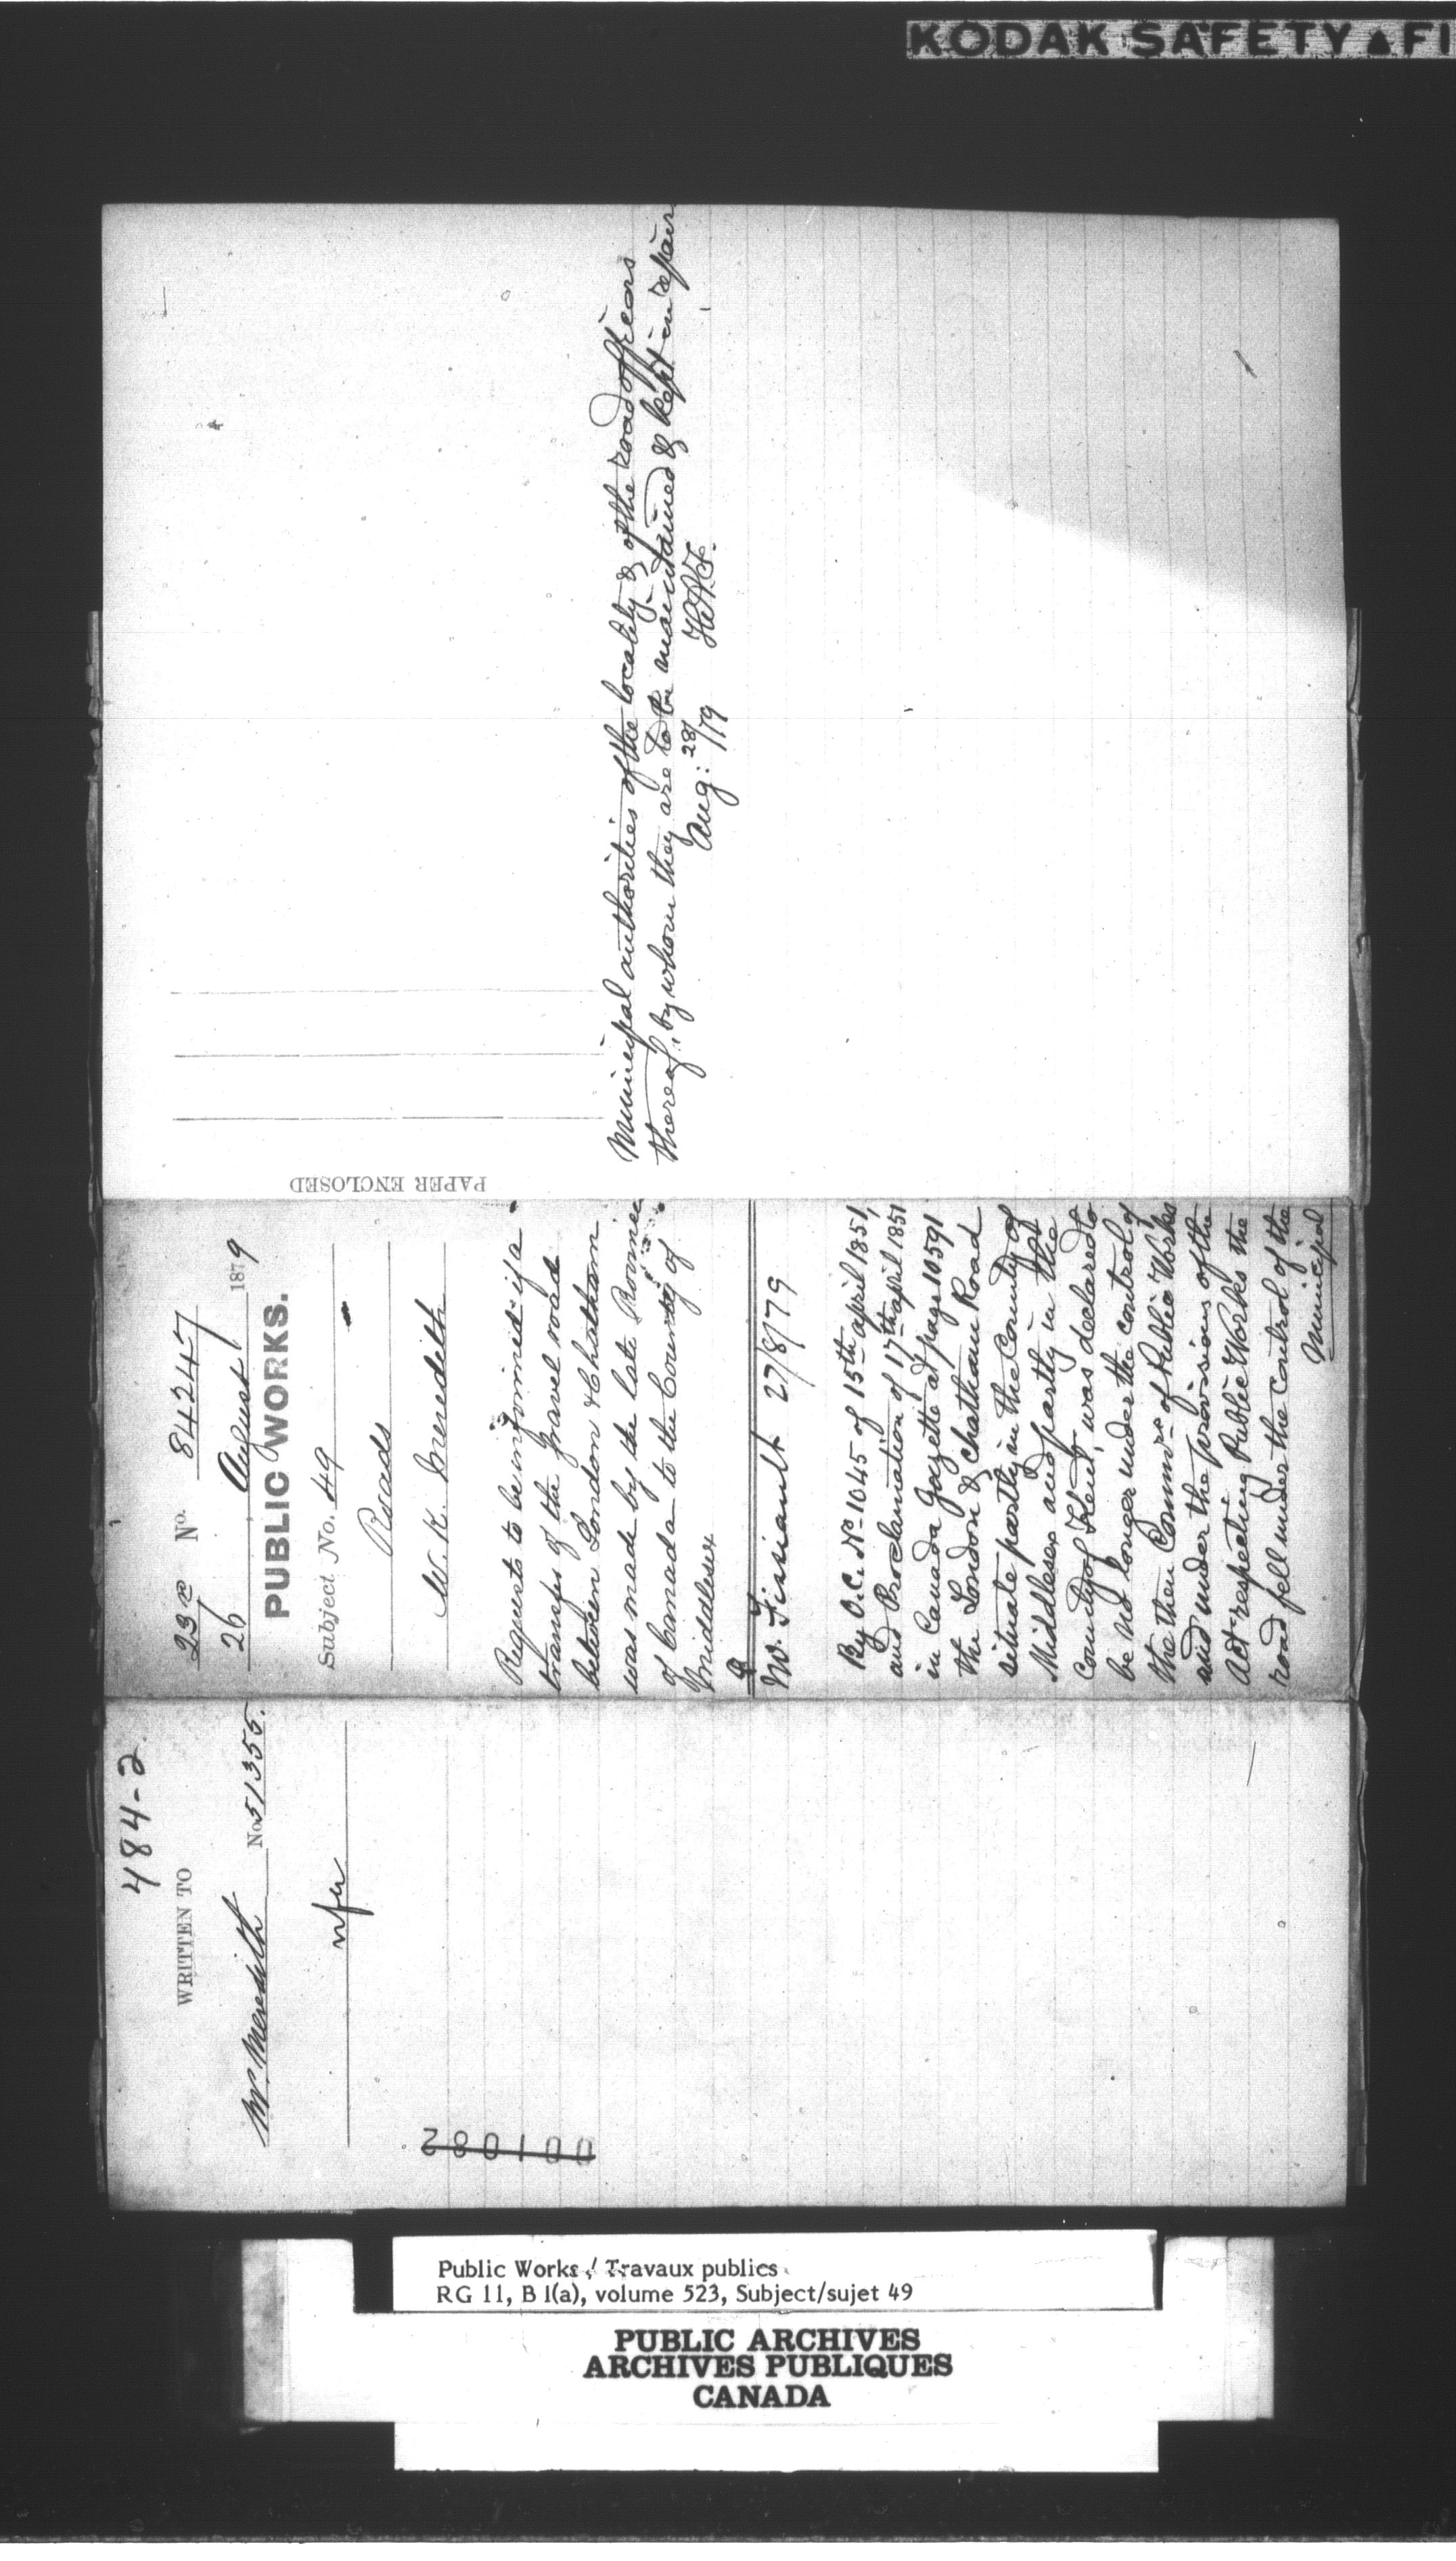 KODAK SAFETY▲FI
484-2
WRITTEN TO
Mr. Meredith No 51355.
nfu
280100
No. 84247
26 August 1879
PUBLIC WORKS.
Subject No. 49
Roads
W. R. Meredith
Requests to be informed if a
transfer of the gravel road
between London & Chatham
was made by the late Province
of Canada to the County of
Middlesex
27/8/79
By O.C. No 1045 of 15th april 1851,
and Proclamation of 17th april 1851
in Canada Gazette at page 10591
the London & Chatham Road
situate partly in the County of
Middlesex and partly in the
County of Kent, was declared to
be no longer under the control of
the then Commrs of Public Works
and under the provisions of the
act respecting Public Works the
road fell under the control of the
Municipal
PAPER ENCLOSED
Municipal authorities of the locality & of the road officers
thereof, by whom they are to be maintained & kept in repair
Aug: 28/79
Public Works / Travaux publics
RG 11, B 1(a), volume 523, Subject/sujet 49
PUBLIC ARCHIVES
ARCHIVES PUBLIQUES
CANADA